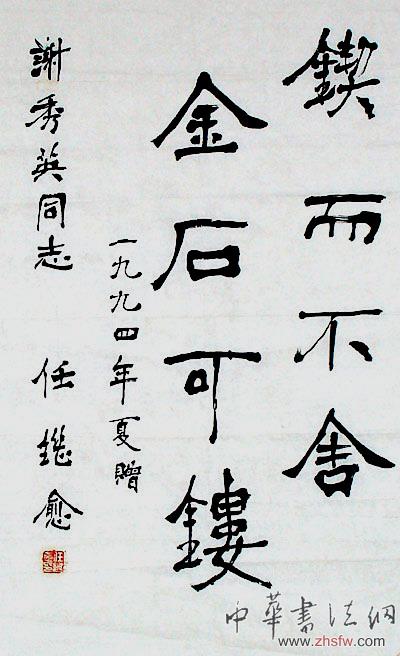 鍥而不舍
金石可鏤
一九九四年夏贈
謝秀英同志
任繼愈
中華書法網
www.zhsfw.com